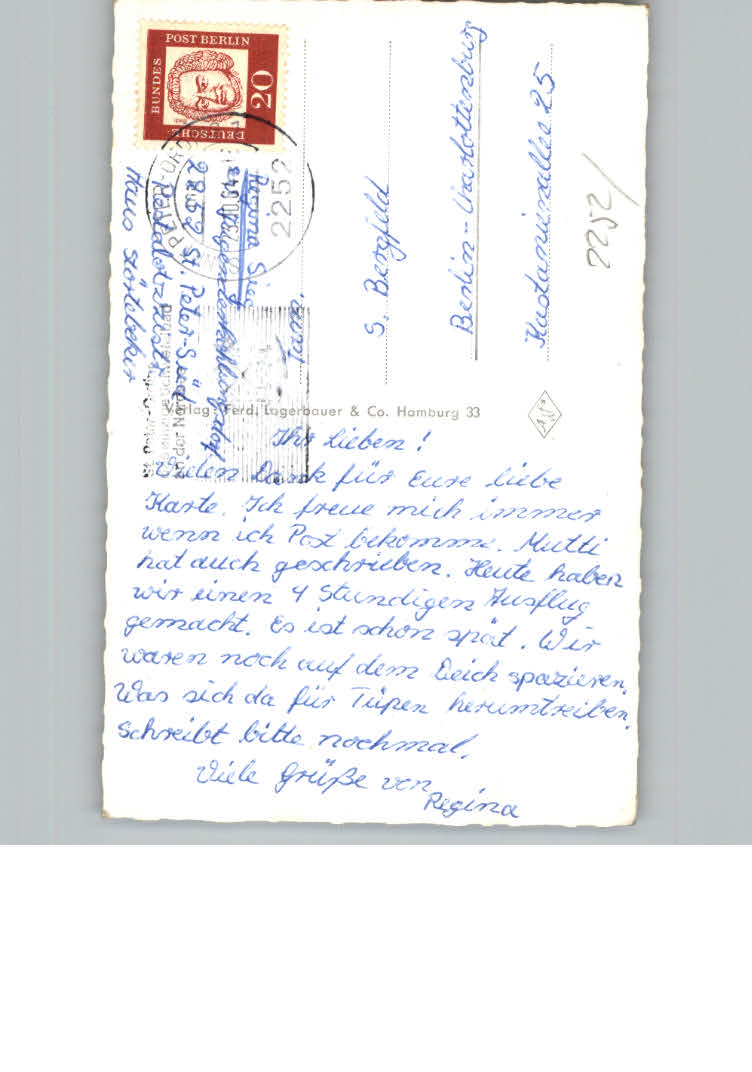 DEUTSCHE
BUNDES
POST BERLIN
20
2252
Regina Sieg
2252 St. Peter-Süd
Haus Störtebeker
Fam.
S. Bergfeld
Berlin-Charlottenburg
Kastanienallee 25
2252/
Verlag: Ferd. Lagerbauer & Co. Hamburg 33
Ihr lieben!
Vielen Dank für Eure liebe
Karte. Ich freue mich immer
wenn ich Post bekomme. Mutti
hat auch geschrieben. Heute haben
wir einen 4 Stundigen Ausflug
gemacht. Es ist schon spät. Wir
waren noch auf dem Deich spazieren.
Was sich da für Tüpen herumtreiben.
Schreibt bitte nochmal.
Viele Grüße von
Regina